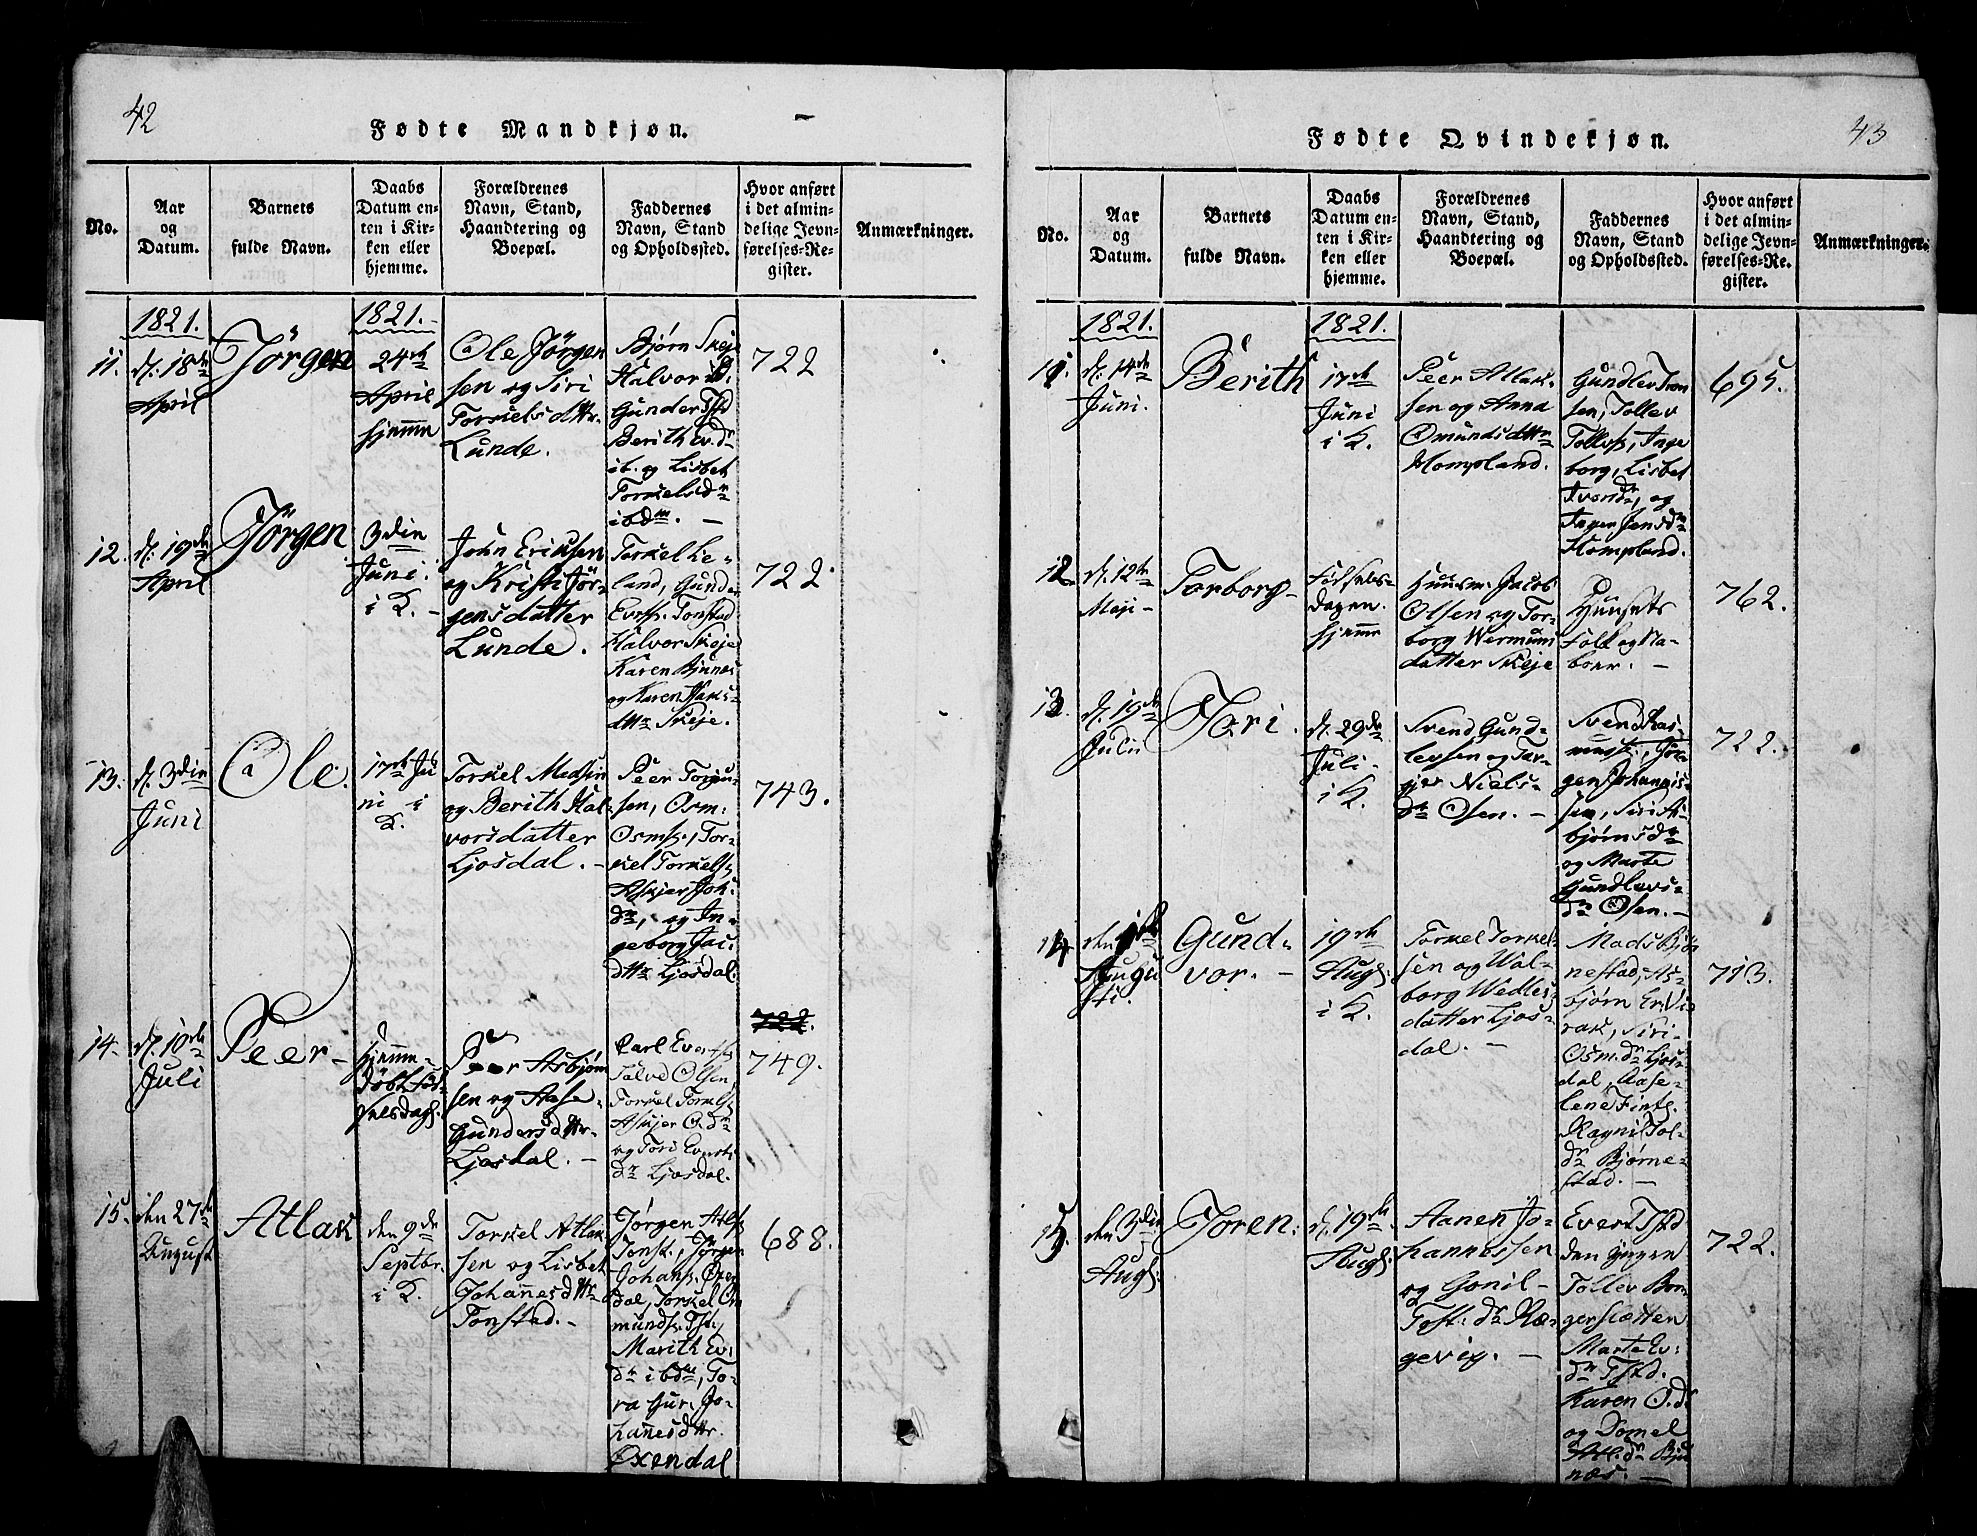 42
Fødte Mandkjøn.
No.
Aar
og
Datum.
Barnets
fulde Navn.
Daabs
Datum en-
ten i Kir-
ken eller
hjemme.
Forældrenes
Navn, Stand,
Haandtering og
Boepæl.
Faddernes
Navn, Stand
og Opholdssted.
Hvor anført
i det almin-
delige Jevn-
førelses-Re-
gister.
Anmærkninger.
1821.
1821.
11.
d. 18de
April
Jörgen
24de
April
hjemme
Ole Jörgen
sen og Siri
Torkels dttr
Lunde.
Bjørn Skeje
Halvor ib.
Gunder Tstd
Berith Ev.dr
ib. og Lisbet
Torkelsdr
ibdm. –
722
12.
d. 19de
April
Jörgen
3die
Juni.
i K. –
John Eriksen
og Kristi Jör-
gensdatter
Lunde.
Torkel Le-
land, Gunder
Everss. Tonstad
Halvor Skeje
Karen Bjunes
og Karen
dttr Skeje.
722.
13.
d. 3die
Juni
Ole.
17de Ju
ni i
K.
Torkel
og Berith Hal-
vorsdatter
Ljosdal. –
Peer Torgu-
sen, Osm:
Osms., Tor-
kel Torkels:
Askjer Joh:
dr, og In-
geborg
dttr Ljosdal.
743.
14.
d. 10de
Juli
Peer –
hjemme-
døbt Föd-
selsdag.
Peer Asbjörn
sen og Aase
Gundersdttr.
Ljosdal. –
Carl Everts.
Salve Olsen,
Torkel Torkels.
Askjer O.dr
og Tori Everts
dr Ljosdal.
722.
749.
15.
den 27de
August
Atlak
den 9de
Septbr.
i K.
Torkel Atlak
sen og Lisbet
Johannesdttr
Tonstad. –
Jörgen Atls.
Tonst., Jörgen
Johans. Øxen
dal, Torkel Om
munds. Tst.,
Marith Ev:
dr ibdm, To-
ra Gur. Jo-
hannesdttr.
Øxendal
688.
43
Fødte Qvindekjøn.
No.
Aar
og
Datum.
Barnets
fulde Navn.
Daabs
Datum en-
ten i Kir-
ken eller
hjemme.
Forældrenes
Navn, Stand,
Haandtering og
Boepæl.
Faddernes
Navn, Stand
og Opholdssted.
Hvor anført
i det almin-
delige Jevn-
førelses-Re-
gister.
Anmærkninger.
1821.
1821.
11.
d. 14de
Juni.
Berith
17de
Juni
i K.
Peer Atlak-
sen og Anna
Omundsdttr
Hompland.
Gundlev Iven
sen, Tollev
Tollefs., Inge
borg, Lisbet
Iversdr, og
Inger Jensdr
Hompland.
695.
12
d. 12te
Maji –
Torborg –
Födsels-
dagen.
hjemme
Huusm. Jacob
Olsen og Tor-
borg Wermun
datter Skeje
Husets
Folk og Na-
boer. –
762.
13.
d. 19de
Julii
Tori.
d. 29de
Juli –
i K.
Svend Gund-
levsen og Tor-
Niels-
dr Osen. –
Svend Ras-
muss., Jör-
gen Johannis-
sen, Siri As-
bjørnsdr
og Marte
Gundlevs-
dr Osen. –
722.
14.
den
Augu
sti.
Gund-
vor. –
19de
Aug:
i K.
Torkel Torkel-
sen og Wal-
borg Wedles-
datter Ljos-
dal. –
Mads Bjør
nestad, As-
bjørn
Siri
Osm.dr Ljos-
dal, Aase-
lene
Ragnil Tol-
dr Bjørne-
stad. –
713.
15.
den 3die
Aug:
Joren.
d. 19de
Aug:
Aanen Jo-
hannessen
og Gonil-
Tost: dr Ræ-
gevig. –
Evert Tstd
den yngre
Tollev Bor-
gerslætten
Marte Ev:
dr Tstd.
Karen O.dr
og Domel
Atl.dr Bju
næs. –
722.